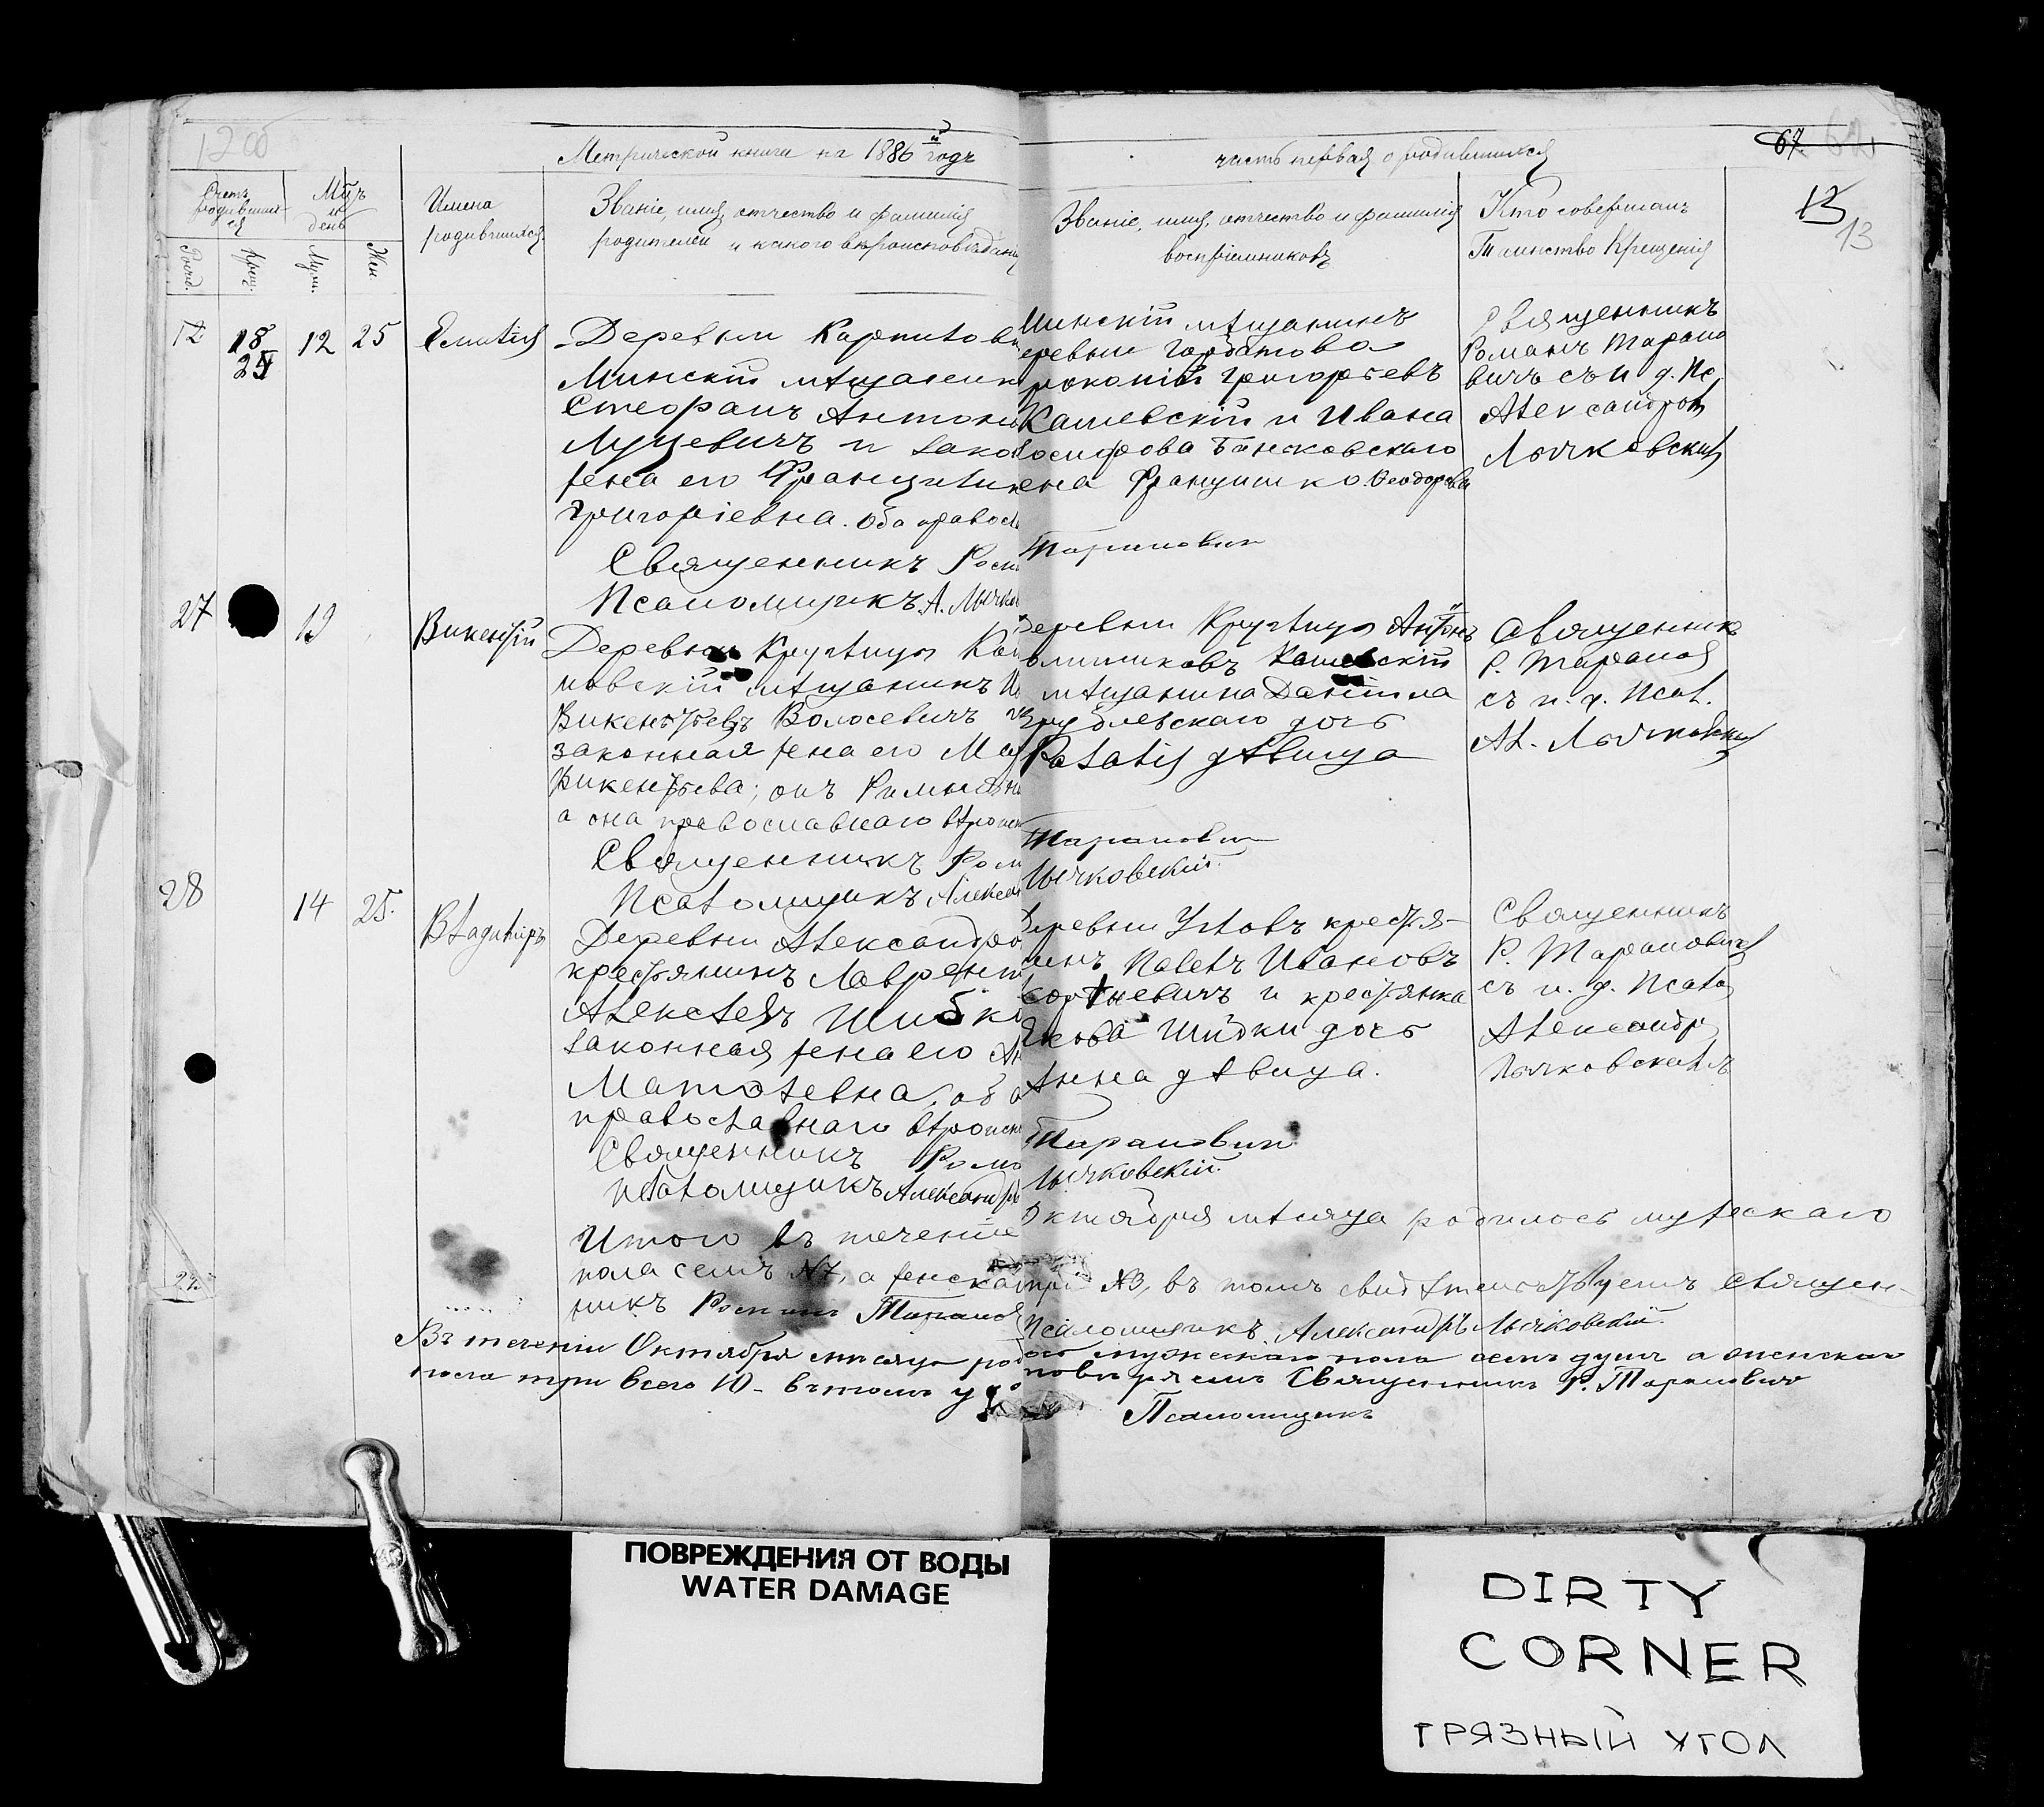 Метрической книги на 1886 й годъ
часть первая о родившихся
67
13
13
Счетъ родившихся
Мцъ и день
Имена родившихся
Званіе, имя, отчество и фамилія родителей и какого вѣроисповѣданія
Званіе, имя, отчество и фамилія воспріемниковъ
Кто совершалъ Таинство Крещенія
Рожд.
Крещ.
Муж.
Жен.
12
18
12
25
Емилія
Деревни
Минскій мѣщанин
Стефанъ Антоно
Луцевичъ и зако
жена его Францишк
Григоріевна. Оба правосл
Священникъ Рома
Псаломщикъ А. Лычко
Минскій мѣщанинъ
еревни Горбатова
рокопій Григорьевъ
Кашевскій и Ивана
осифова
ена Францишка Феодорова
Таранович
Священникъ
Романъ Тарано
вичъ съ и. д. Пс.
Александром
Лычковским
27
12
Викентій
Деревни Кругліца
новскій мѣщанинъ
Викентьевъ Волосевичъ
законная жена его Ма
Викентьева; онъ Римск
а она православнаго вѣроисп
Священникъ Ром
Псаломщикъ Алекса
еревни Кругліца Антонъ
Кашевскій
мѣщанина Даніила
дочь
Наталія дѣвица
Таранович
Лычковскій.
Священникъ
Р. Таранов
съ и. д. Псал.
Ал. Лычковским
28
14
25.
Владиміръ
Деревни Александро
крестьянинъ Лаврент
Алексѣевъ Шибко
законная жена его Ан
Матѳеевна, об а
православнаго вѣроисп
Священникъ Рома
Псаломщикъ Александръ
еревни Углов крестья-
инъ Павелъ Ивановъ
и крестьянка
Якова Шибки дочь
Анна дѣвица.
Таранович
Лычковскій.
Священникъ
Р. Таранович
съ и. д. Псало
Александр
Лычковскимъ
Итого въ теченіе Октября мѣсяца родилось мужескаго
пола семь №7, а женска три №3, въ томъ свидѣтельствуемъ Священ-
никъ Романъ Таранов Псаломщикъ Александръ Лычковскій.
Въ теченіи Октября мѣсяца род ого мужескаго пола семь душъ а женскаго
пола три всего 10 - въ томъ Священникъ Р. Таранович
Псаломщикъ
ПОВРЕЖДЕНИЯ ОТ ВОДЫ
WATER DAMAGE
DIRTY
CORNER
ГРЯЗНЫЙ УГОЛ